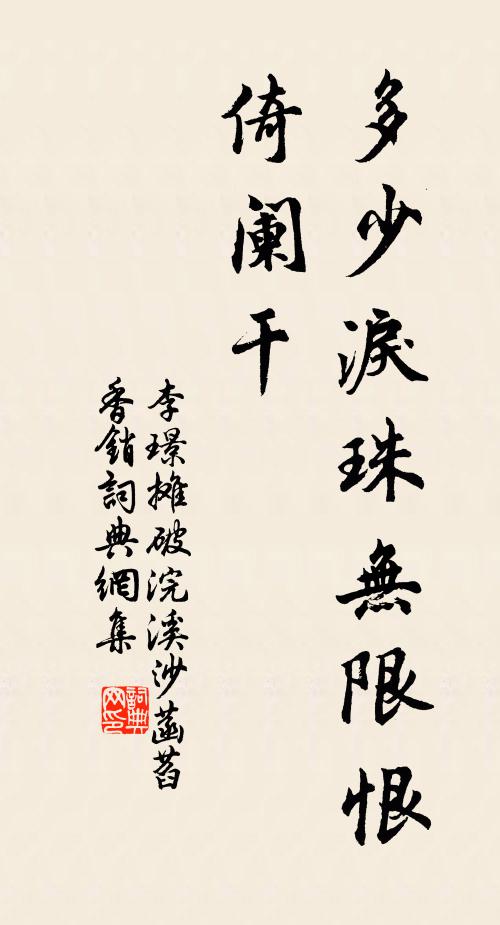 多少淚珠無限恨
倚阑干
李璟攤破浣溪沙菡萏
香銷詞典網集
詞典
网印